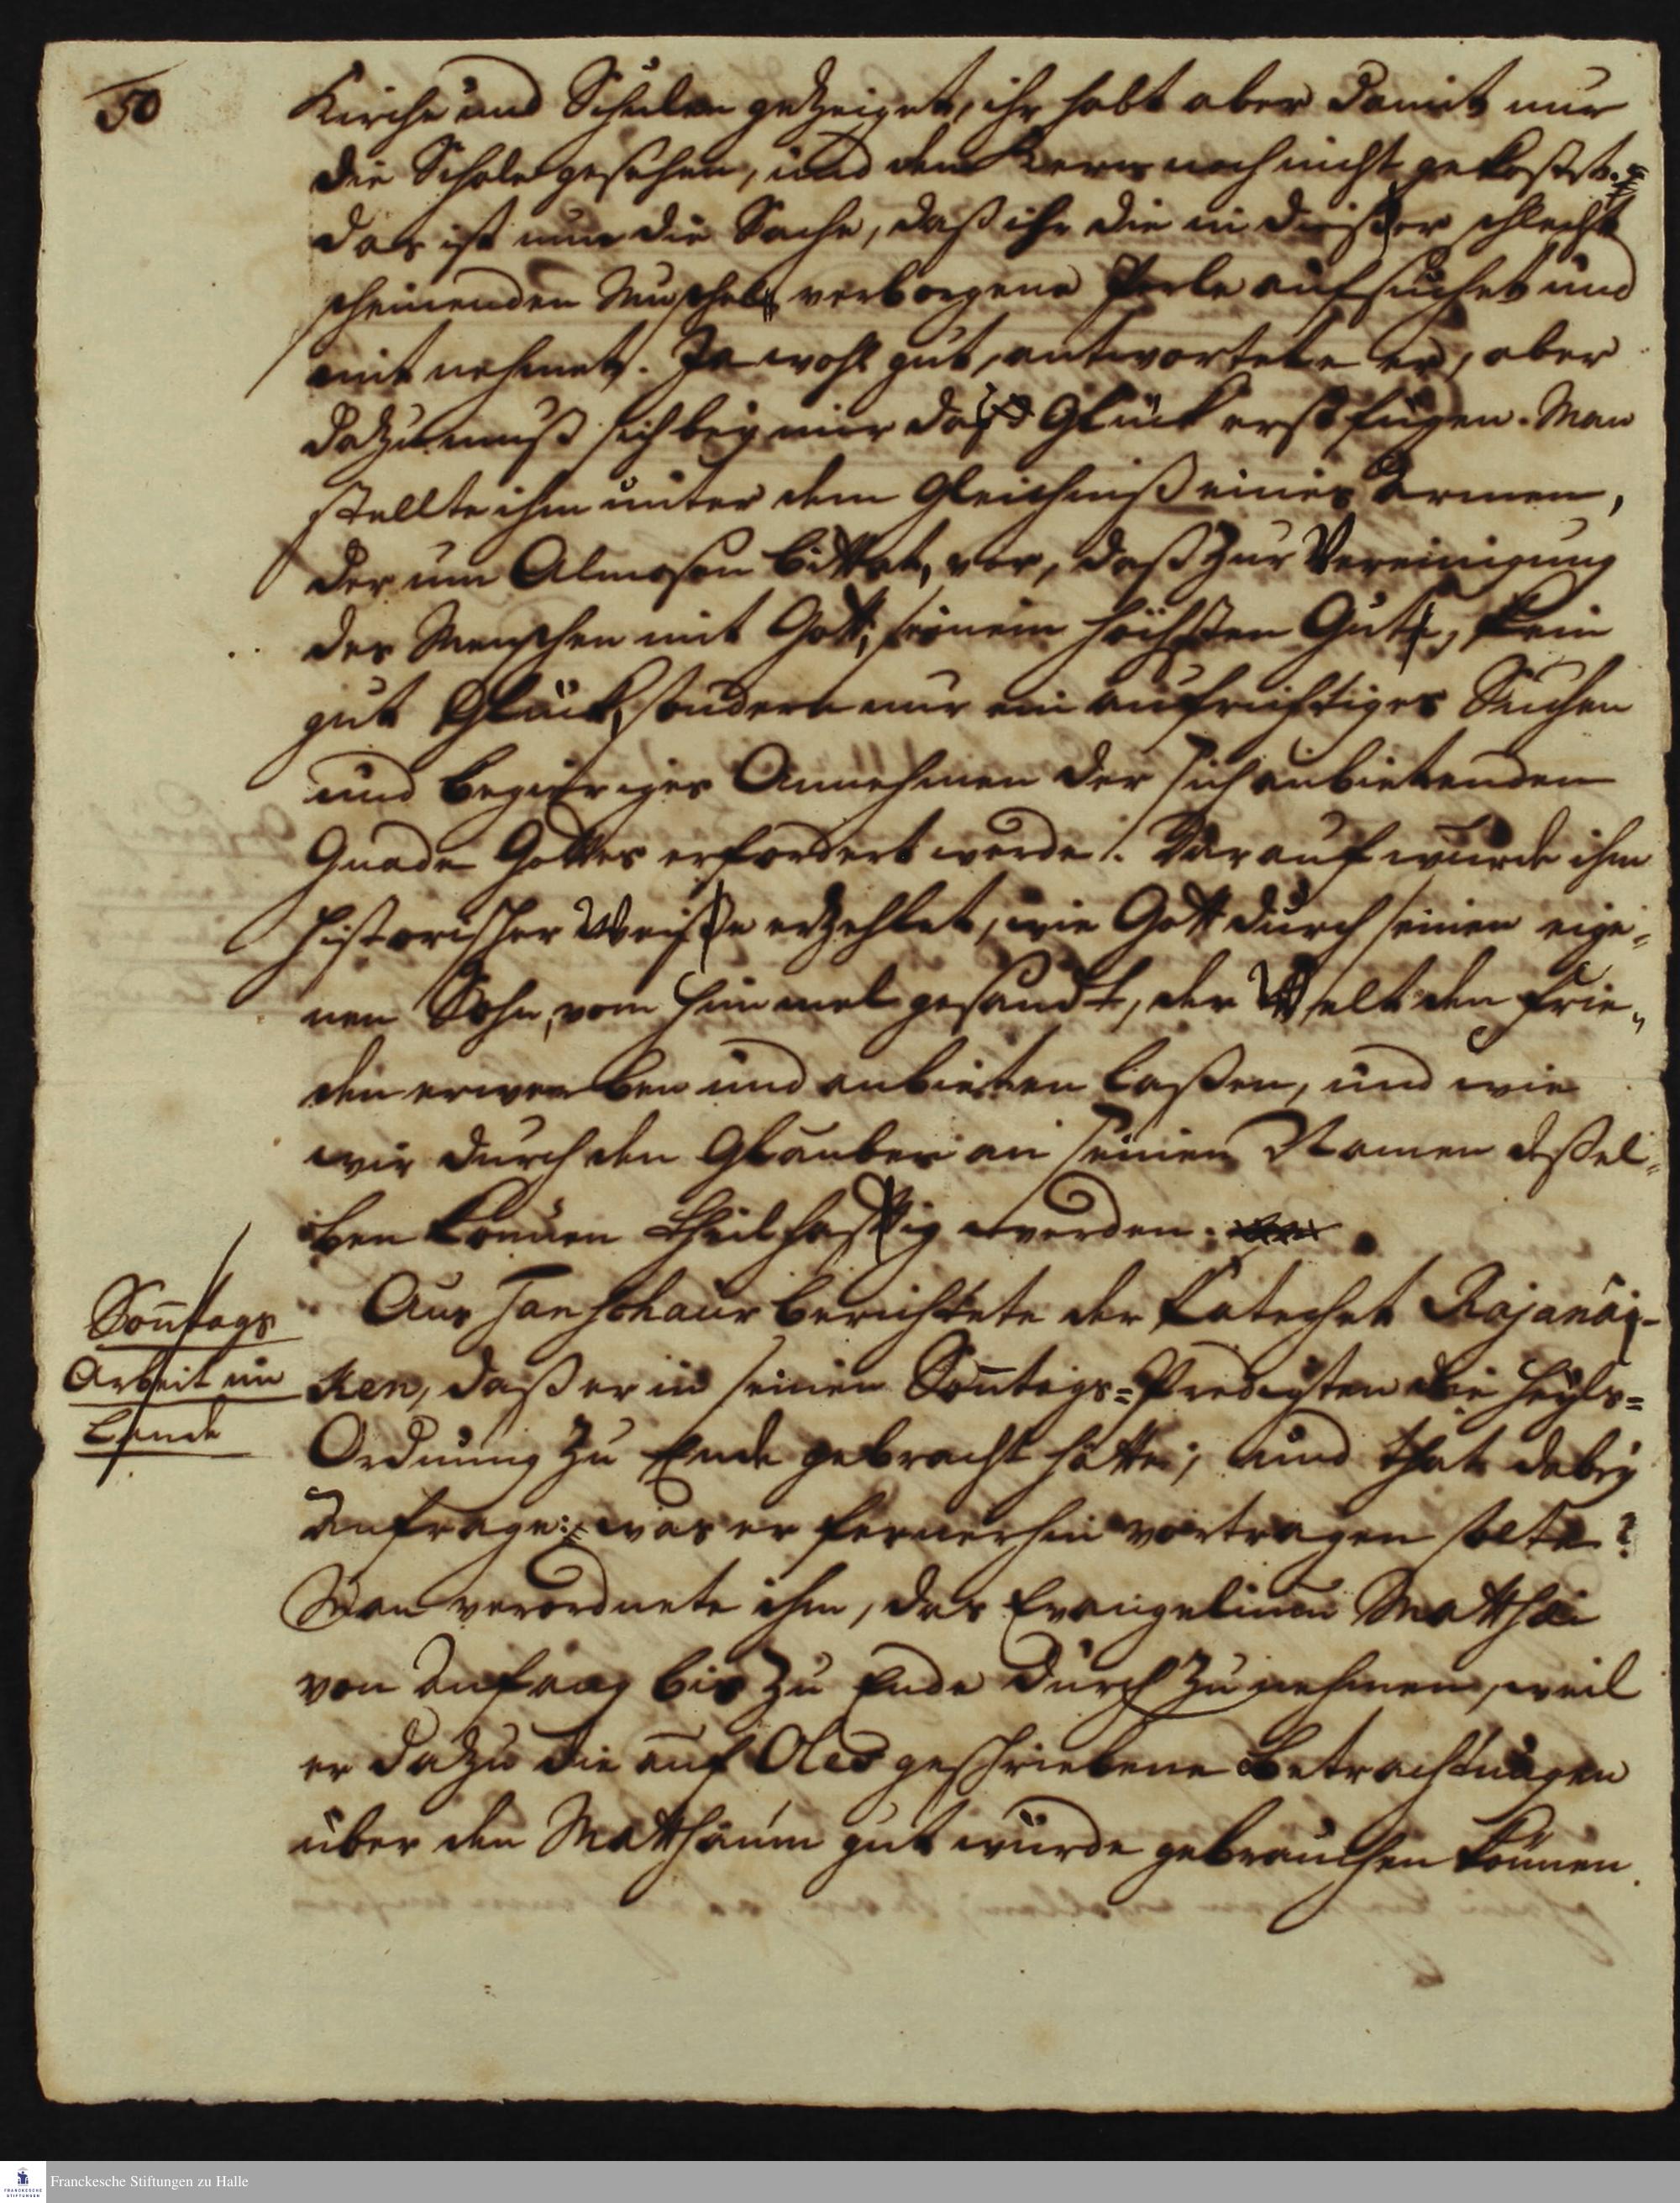 50
Kirche und Schulen gezeiget, ihr habt aber damit nur
die Schale gesehen, und den Kern noch nicht gekostet.
das ist nun die Sache, daß ihr die in dieser schlecht
scheinenden Muschel verborgene Perle aufsuchet und
mit nehmet. Ja wohl gut, antwortete er, aber
dazu muß sich bey mir das Glück erst fügen. Man
stellte ihm unter dem Gleichniß eines Armen,
der um Almosen bittet, vor, daß zur Vereinigung
des Menschen mit Gott, seinem höchsten Gute, kein
gut Glück, sondern nur ein aufrichtiges Suchen
und begieriges Annehmen der sich anbietenden
Gnade Gottes erfordert werde. Darauf wurde ihm
historischer Weise erzehlet, wie Gott durch seinen eige-
nen Sohn, vom Himmel gesandt, der Welt den Frie-
den erwerben und anbieten laßen, und wie
wir durch den Glauben an seinen Namen deßel-
ben können theilhaftig werden.
Sontags
Arbeit im
Lande
Aus Tanschaur berichtete der Catechet Rajanáy-
ken, daß er in seinen Sontags-Predigten die Heyls-
Ordnung zu Ende gebracht hätte; und that dabey
Anfrage: was er fernerhin vortragen solte?
Man verordnete ihm, das Evangelium Matthäi
von Anfang bis zu Ende durch zu nehmen, weil
er dazu die auf Oles geschriebene Betrachtungen
über den Matthäum gut würde gebrauchen können.
Franckesche Stiftungen zu Halle